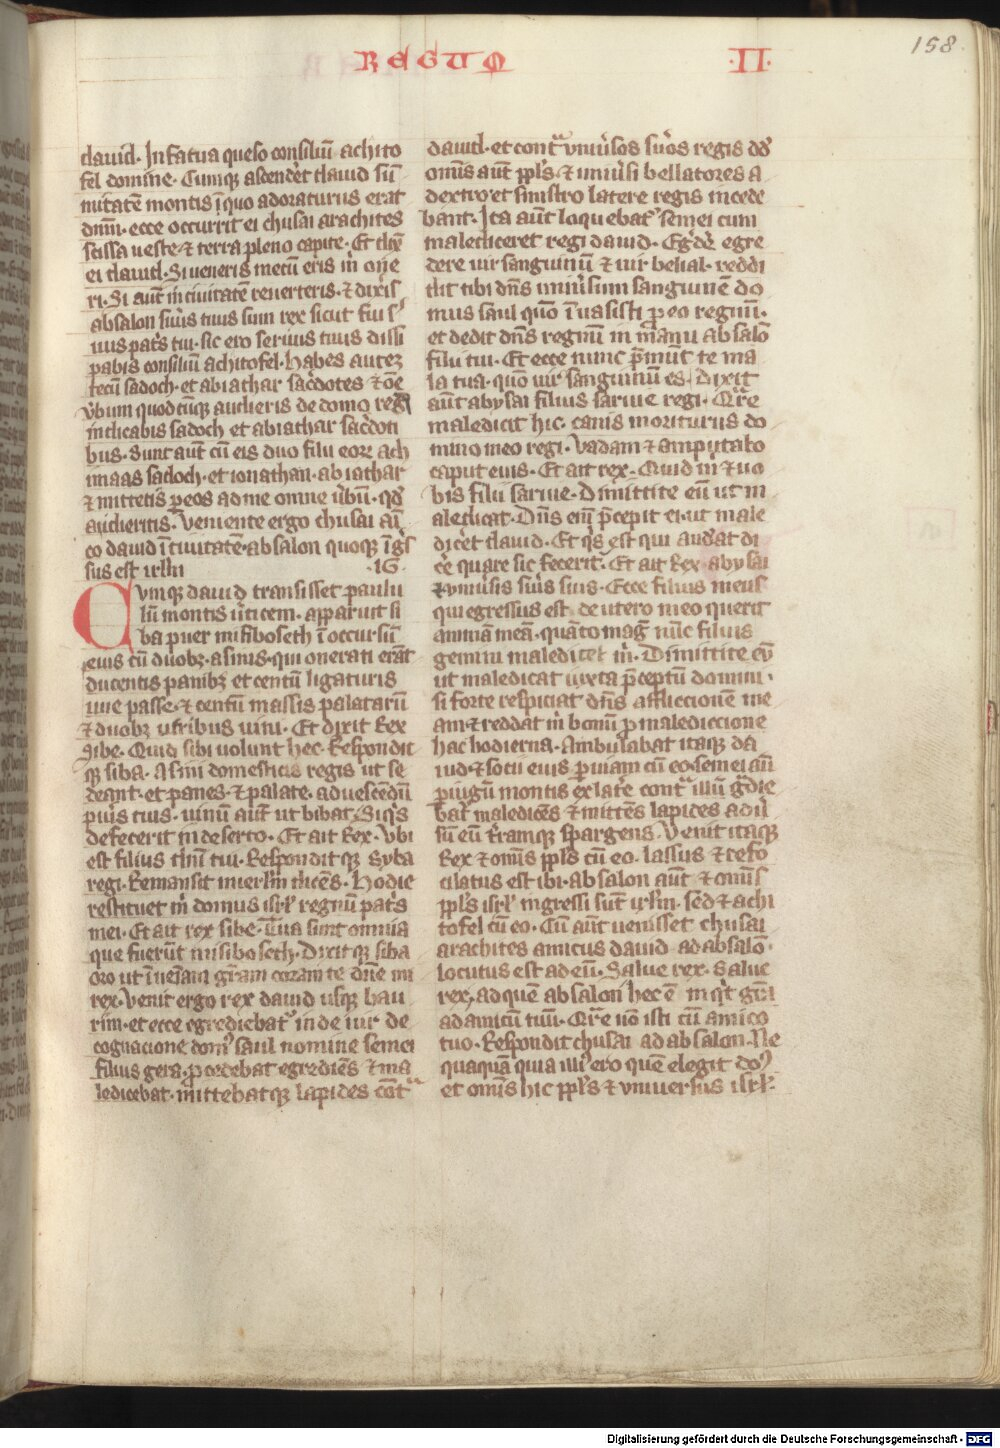 REGUM
·II·
158
dauid. Infatua queso consiliū achito
fel domine. Cumqȝ ascenderet dauid sū
mitatē montis ī quo adoraturus erat
dnm̄. ecce occurrit ei chusai arachites
scissa ueste ⁊ terra pleno capite. Et dixͭ
ei dauid. Si ueneris mecū eris m̍ one
ri. Si aūt in ciuitatē reuerteris. ⁊ dix̍is
absalon suus tuus sum rex sicut fui s̍
uus pat̍s tui. sic ero seruus tuus dissi
pabis consiliū achitofel. Habes autez
tecū sadoch. et abiathar sac̍dotes ⁊ oē
v̍bum quodcūqȝ audieris de domo regis
indicabis sadoch et abiathar sac̍doti
bus. Sunt aūt cū eis duo filii eorz ach
imaas sadoch. et ionathan. abiathar
⁊ mittetis p eos ad me omne u̍bū. qd̍
audieritis. Veniente ergo chusai ami
co dauid ī ciuitatē. absalon quoqȝ īg̍s
sus est irl̄m ·16·
Cumqȝ dauid transisset paulu
lū montis u̍ticem. apparuit si
ba puer mifiboseth ī occursū
eius cū duobȝ. asinis. qui onerati erāt
ducentis panibȝ et centū ligaturis
uue passe. ⁊ centū massis palatarū
⁊ duobȝ utribus uini. Et dixit Rex
sibe. Quid sibi uolunt hec. Respondit
qȝ siba. Asini domesticis regis ut se
deant. et panes. ⁊ palate. ad uescēdū
pu̍is tuis. uinū aūt ut bibat. Siq̍s
defecerit in deserto. Et ait Rex. Vbi
est filius dn̄i tui. Responditqȝ Syba
regi. Remansit in ierl̄m dicēs. Hodie
restituet m̍ domus isrl̄ regnū pat̍s
mei. Et ait rex sibe. Tua sint omnia
que fuerūt mifiboseth. Dixitqȝ siba
oro ut īueīam grām coram te dn̄e mi
rex. Venit ergo rex dauid usqȝ bau
rim. et ecce egrediebat̍ inde uir de
cognacione dom̍ saul nomine semei
filius gera. procedebat egrediēs ⁊ ma
ledicebat. mittebatqȝ lapides cont̄ᵃ
dauid. et cont̄ᵃ vniu̍sos su̍os regis dd̍
om̄is aūt ppl̄s. ⁊ uniu̍si bellatores a
dextro et sinistro latere regis incede
bant. Ita aūt loquebat̍ semei cum
malediceret regi dauid. Eg̍de̍ egre
dere uir sanguinū ⁊ uir belial. reddi
dit tibi dn̄s uniu̍sum sanguinē do
mus saul quō īuasisti p eo regnū.
et dedit dn̄s regnū in manu absalō
filii tui. Et ecce nunc p̄mūt te ma
la tua. quō uir sanguinū es. Dixit
aūt abysai filius saruie regi. Qr̄e
maledicit hic. canis moriturus do
mino meo regi. Vadam ⁊ amputabo
caput eius. Et ait rex. Quid m̍ ⁊ uo
bis filii saruie. Dimittite eū ut m
aledicat. Dn̄s eīm p̄cepit ei. ut male
dic̍et dauid. Et q̍s est qui aud̍at di
c̍e quare sic fecerit. Et ait Rex abysai
⁊ vniu̍sis su̍is suis. Ecce filius meus
qui egressus est. de utero meo querit
animā meā. quāto mag̍ nūc filius
gemini maledicet m̍. Dimittite eū
ut maledicat iuxta p̄ceptū domini.
si forte respiciat dn̄s affliccionē me
am ⁊ reddat m̍ bonū p malediccione
hac hodierna. Ambulabat itaqȝ da
uid ⁊ socii eius p uiam cū eo. semei aūt
p iugū montis ex lat̍e cont̄ᵃ illū g̍die
bat̍ maledicēs ⁊ mittēs lapides adu̍
sū eū t̍ramqȝ spargens. Venit itaqȝ
Rex ⁊ om̄is ppl̄s cū eo. lassus ⁊ refo
cilatus est ibi. absalon aūt ⁊ om̄is
ppl̄s isrl̄ ingressi sūt irl̄m. sed ⁊ achi
tofel cū eo. Cū aūt uenisset chusai
arachites amicus dauid ad absalō.
locutus est ad eū. Salue rex. Salue
rex. ad quē absalon hec ē inq̍t grā
ad amicū tuū. Qr̄e nō isti cū amico
tuo. Respondit chusai ad absalon. Ne
quaquā quia illi̍ ero quē elegit do̍
et om̄is hic ppl̄s ⁊ vniuersus isrl̄.
Digitalisierung gefördert durch die Deutsche Forschungsgemeinschaft - DFG